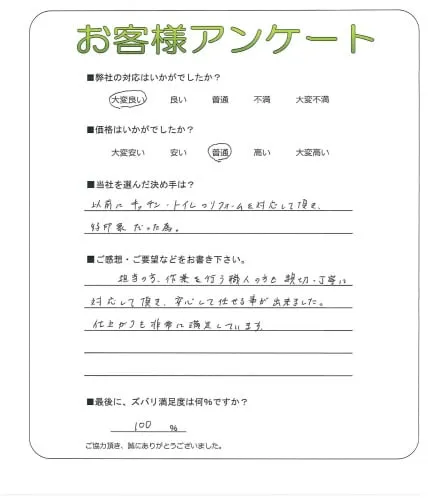 お客様アンケート
■弊社の対応はいかがでしたか？
大変良い 良い 普通 不満 大変不満
■価格はいかがでしたか？
大変安い 安い 普通 高い 大変高い
■当社を選んだ決め手は？
以前にキッチン・トイレのリフォームを対応して頂き、
好印象だった為。
■ご感想・ご要望などをお書き下さい。
担当の方、作業を行う職人の方も親切・丁寧に
対応して頂き、安心して任せる事が出来ました。
仕上がりも非常に満足しています。
■最後に、ズバリ満足度は何%ですか？
100 %
ご協力頂き、誠にありがとうございました。